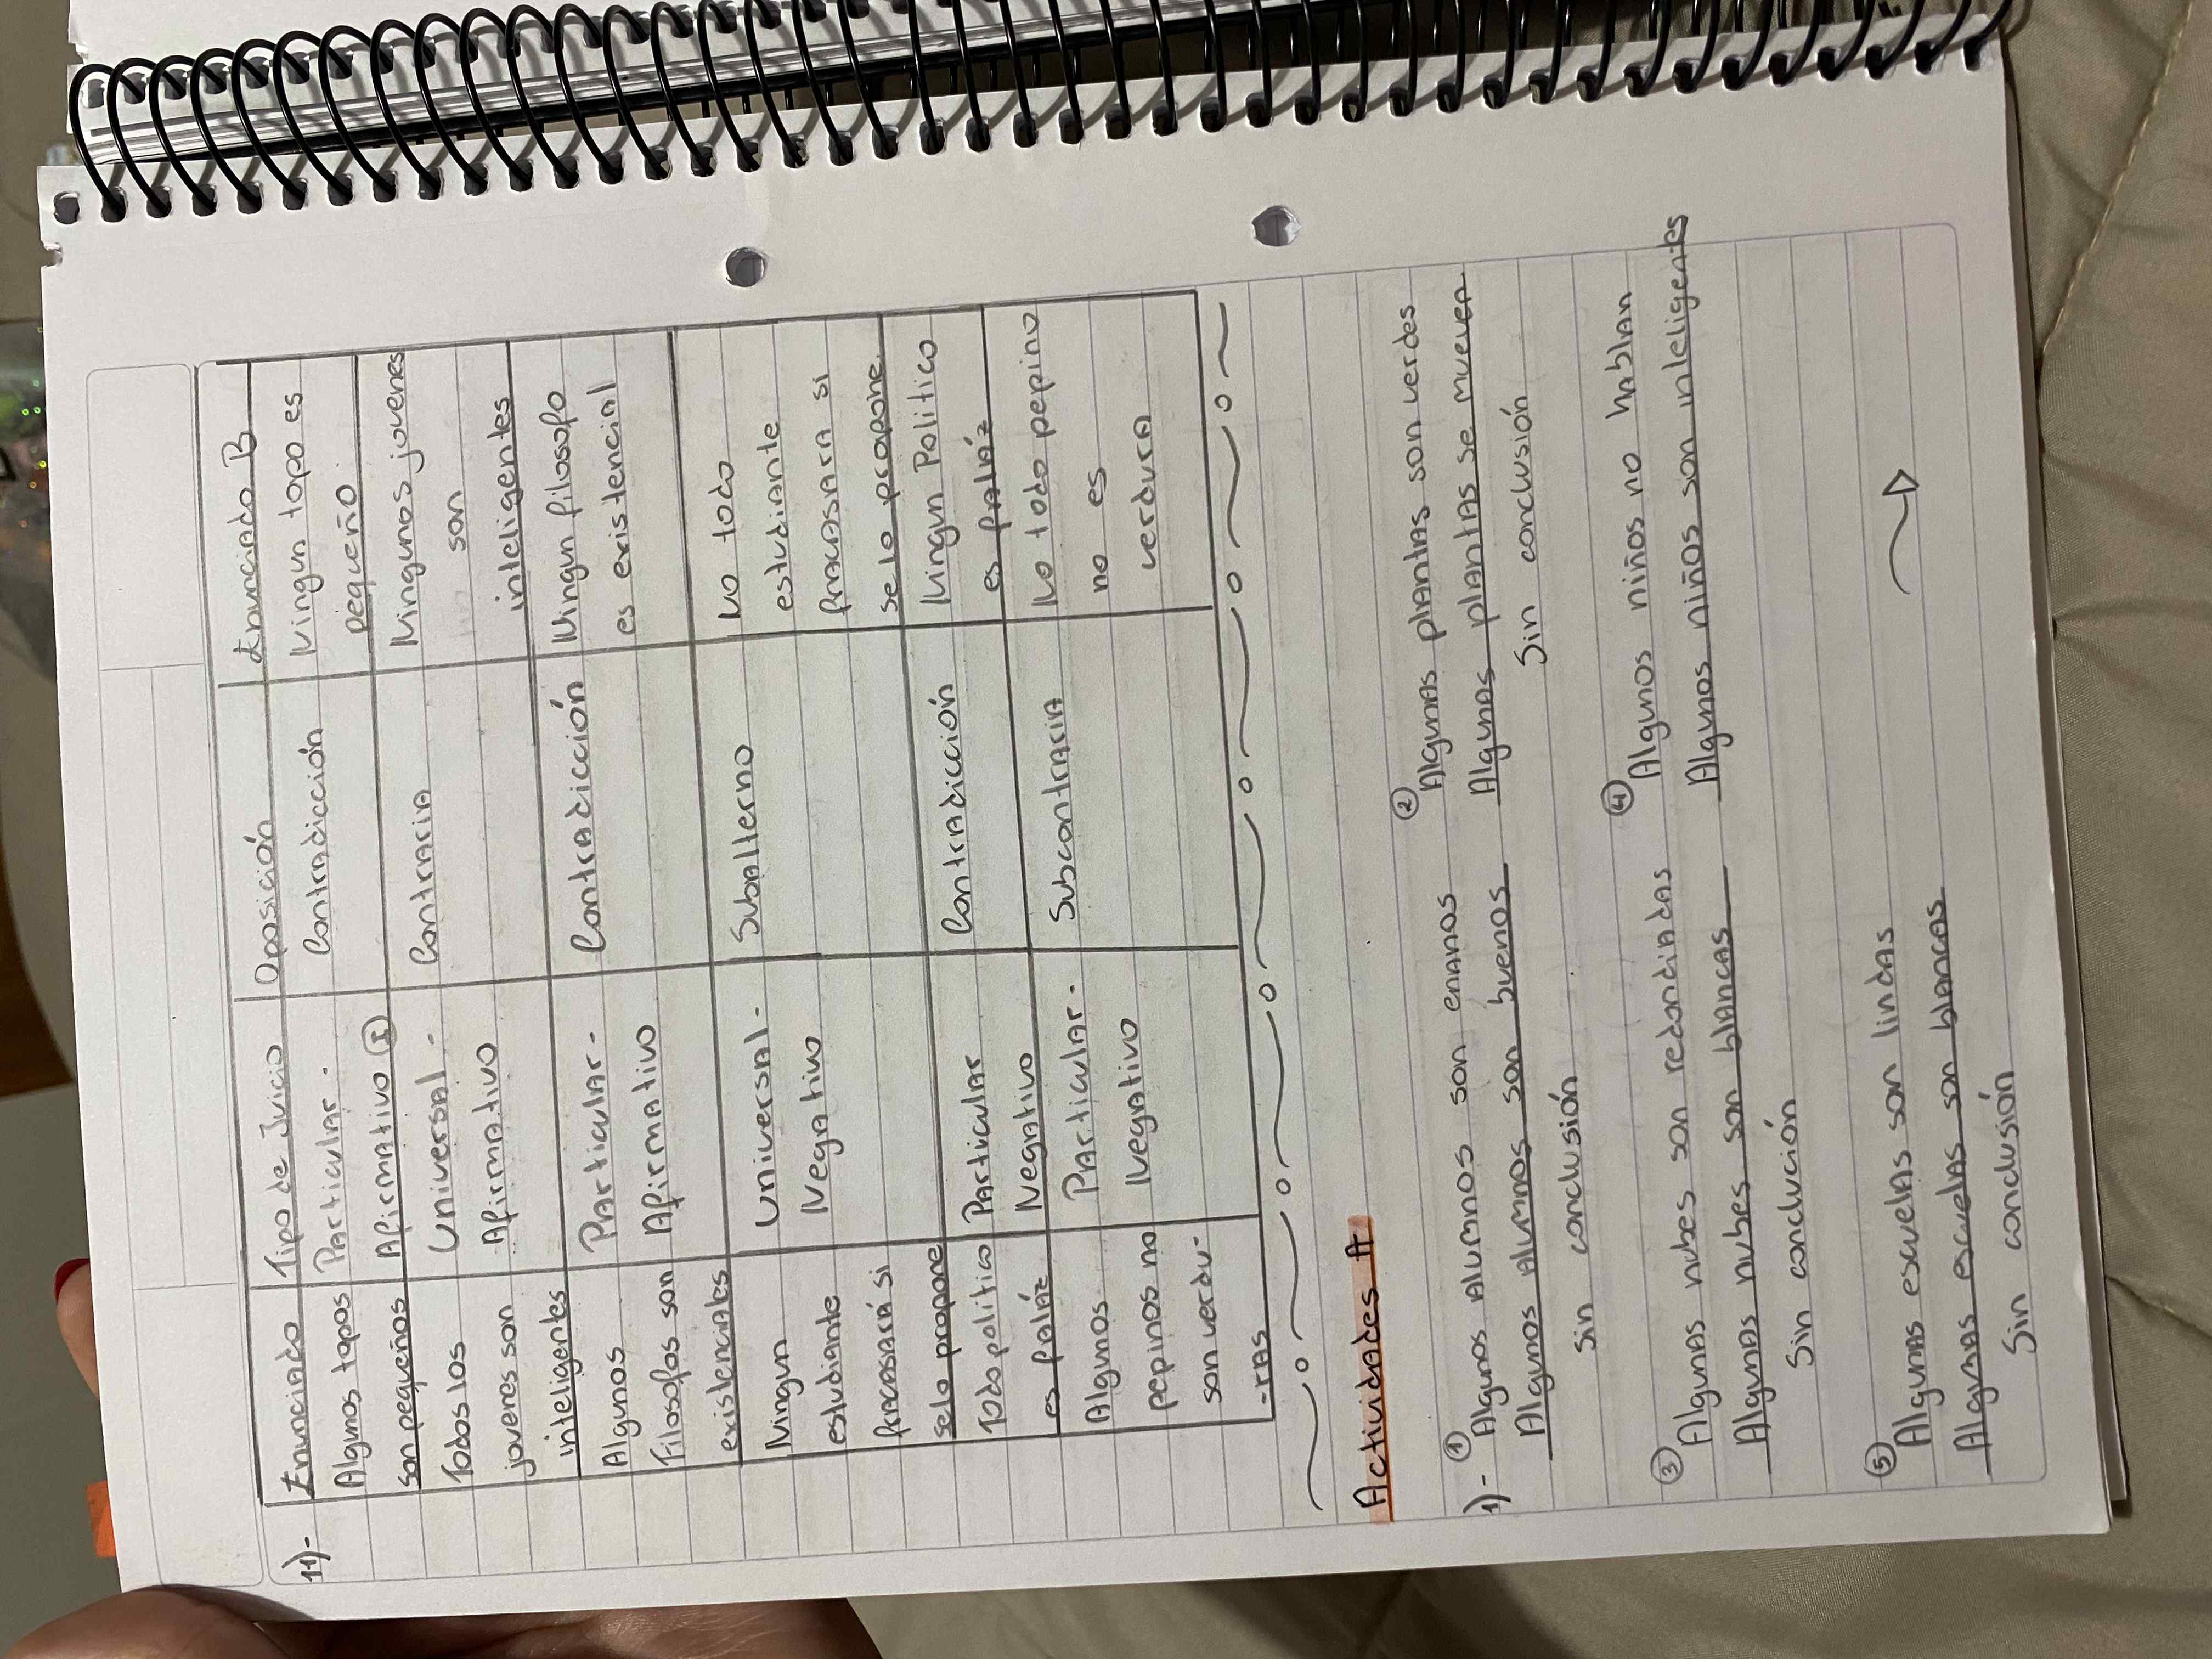 11)-
Enunciado Tipo de Juicio Oposición Enunciado B
Algunos topos Particular - Contradicción Ningun topo es
son pequeños Afirmativo I pequeño
Todos los Universal - Contraria Ningunos jovenes
jovenes son Afirmativo son
inteligentes inteligentes
Algunos Particular - Contradicción Ningun filosofo
Filosofos son Afirmativo es existencial
existenciales
Ningun Universal - Subalterno No todo
estudiante Negativo estudiante
fracasará si fracasara si
selo propone se lo propone.
Todo politico Particular Contradicción Ningun Politico
es faláz Negativo es faláz
Algunos Particular - Subcontraria No todo pepino
pepinos no Negativo no es
son verdu- verdura
-ras
Actividades A
1)- ① Algunos alumnos son enanos
Algunos alumnos son buenos
Sin conclusión
② Algunas plantas son verdes
Algunas plantas se mueven
Sin conclusión
③ Algunas nubes son redondiadas
Algunas nubes son blancas
Sin conclución
④ Algunos niños no hablan
Algunos niños son inteligentes
⑤ Algunas escuelas son lindas
Algunas escuelas son blancas
Sin conclusión